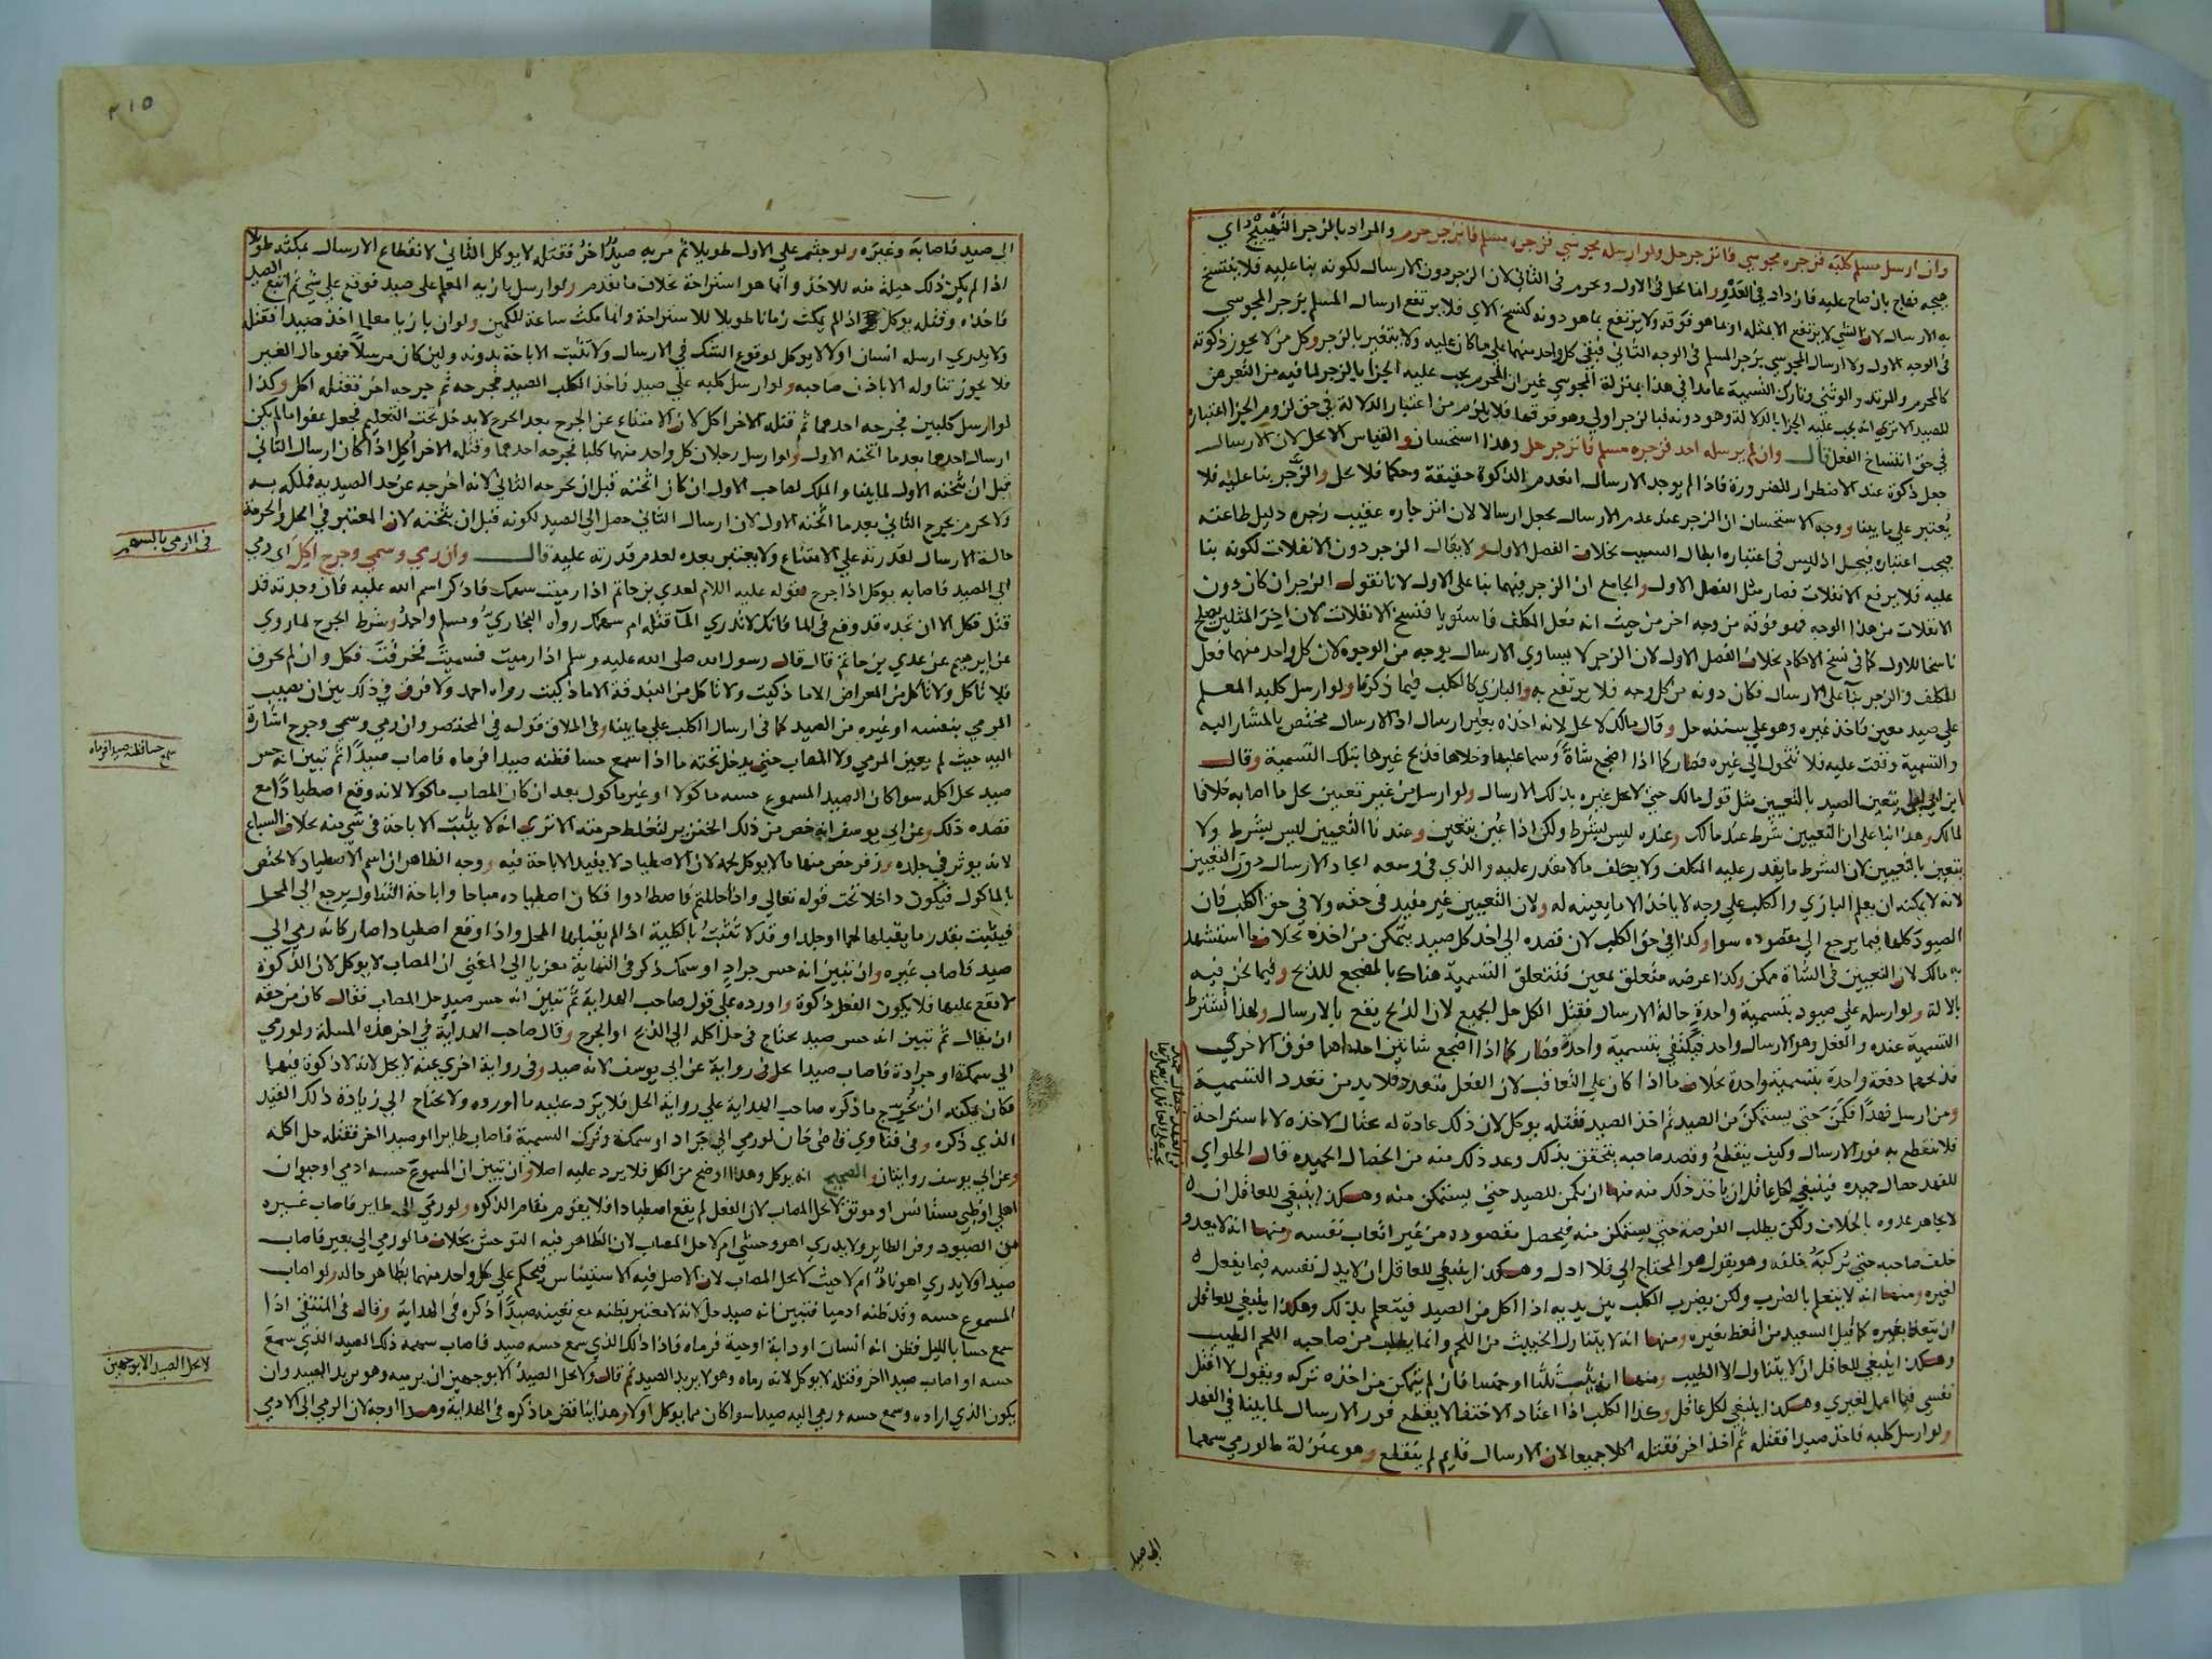 وان ارسل مسلم كلبه فزجره مجوسي فانزجر حل ولو ارسله مجوسي فزجره مسلم فانزجر حرم والمراد بالزجر التهييج اي
هيجه فهاج بان صاح عليه فازداد في العدو انما يحل في الاول وحرم في الثاني لان الزجر دون الارسال لكونه بناء عليه فلا ينتسخ
به الارسال لان الشي لا يرتفع الا بمثله او بما هو فوقه ولا يرتفع بما هو دونه كنسخ الاي فلا يرتفع ارسال المسلم بزجر المجوسي
في الوجه الاول ولا ارسال المجوسي بزجر المسلم في الوجه الثاني فبقي كل واحد منهما علي ما كان عليه ولا يتغير بالزجر وكل من لا يجوز ذكوته
كالمحرم والمرتد والوثني وتارك التسمية عامدا في هذا بمنزلة المجوسي غير ان المحرم يجب عليه الجزا بالزجر لما فيه من التعرض
للصيد الا تري انه يجب عليه الجزا بالدلالة وهو دونه فبالزجر اولي وهو فوقها فلا يلزم من اعتبار الدلالة في حق لزوم الجزا اعتباره
في حق انفساخ الفعل قال وان لم يرسله احد فزجره مسلم فانزجر حل وهذا استحسان والقياس الا يحل لان الارسال
جعل ذكوة عند الاضطرار للضرورة فاذا لم يوجد الارسال انعدم الذكوة حقيقة وحكما فلا يحل والزجر بنا عليه فلا
يعتبر علي ما بينا ووجه الاستحسان ان الزجر عند عدم الارسال يجعل ارسالا لان انزجاره عقيب زجره دليل طاعته
فيجب اعتباره فيحل اذ ليس في اعتباره ابطال السبب بخلاف الفصل الاول ولا يقال الزجر دون الانفلات لكونه بنا
عليه فلا يرفع الانفلات فصار مثل الفصل الاول والجامع ان الزجر فيهما بنا على الاول لانا نقول الزجر ان كان دون
الانفلات من هذا الوجه فهو فوقه من وجه اخر من حيث انه فعل المكلف فاستويا فنسخ الانفلات لان اخر المثلين يصلح
ناسخا للاول كما في نسخ الاحكام بخلاف الفصل الاول لان الزجر لا يساوي الارسال بوجه من الوجوه لان كل واحد منهما فعل
المكلف والزجر بناء على الارسال فكان دونه من كل وجه فلا يرتفع به والبازي كالكلب فيما ذكرنا ولو ارسل كلبه المعلم
علي صيد معين فاخذ غيره وهو علي سننه حل وقال مالك لا يحل لانه اخذه بغير ارسال اذ الارسال مختص بالمشار اليه
والتسمية وقعت عليه فلا تتحول الي غيره فصار كما اذا اضجع شاة وسما عليها وخلاها فذبح غيرها بتلك التسمية وقال
ابن ابي ليلي يتعين الصيد بالتعيين مثل قول مالك حتي لا يحل غيره بذلك الارسال ولو ارسل من غير تعيين يحل ما اصابه خلافا
لمالك وهذا بنا علي ان التعيين شرط عند مالك وعنده ليس بشرط ولكن اذا عين يتعين وعندنا التعيين ليس بشرط ولا
يتعين بالتعيين لان الشرط ما يقدر عليه المكلف ولا يكلف ما لا يقدر عليه والذي في وسعه ايجاد الارسال دون التعيين
لانه لا يمكنه ان يعلم البازي والكلب علي وجه لا ياخذ الا ما يعينه له ولان التعيين غير مفيد في حقه ولا في حق الكلب فان
الصيود كلها فيما يرجع الي مقصوده سوا وكذا في حق الكلب لان قصده الي اخذ كل صيد يتمكن من اخذه بخلاف ما استشهد
به مالك لان التعيين في الشاة ممكن وكذا غرضه متعلق بمعين فتتعلق التسمية هناك بالمضجع للذبح وفيما نحن فيه
بالالة ولو ارسله علي صيود بتسمية واحدة حالة الارسال فقتل الكل حل الجميع لان الذبح يقع بالارسال ولهذا تشترط
التسمية عنده والفعل وهو الارسال واحد فيكتفي بتسمية واحدة وصار كما اذا اضجع شاتين احداهما فوق الاخري
فذبحهما دفعة واحدة بتسمية واحدة بخلاف ما اذا كان علي التعاقب لان الفعل متعدد فلا بد من تعدد التسمية
ومن ارسل فهدا فكمن حتي يستمكن من الصيد ثم اخذ الصيد فقتله يوكل لان ذلك عادة له يحتال لاخذه لا استراحة
فلا ينقطع به فور الارسال وكيف ينقطع وقصد صاحبه يتحقق بذلك وعد ذلك منه من الخصال الحميده قال الحلواي
للفهد خصال حميده فينبغي لكل عاقل ان ياخذ ذلك منه منها ان يكمن للصيد حتي يستمكن منه وهكذا ينبغي للعاقل ان
لا يجاهر عدوه بالخلاف ولكن يطلب الفرصة حتي يستمكن منه فيحصل مقصوده من غير اتعاب نفسه ومنها انه لا يعدو
خلف صاحبه حتي يركبه خلفه وهو يقول هو المحتاج الي فلا اذل وهكذا ينبغي للعاقل ان لا يذل نفسه فيما يفعل
لغيره ومنها انه لا يتعلم بالضرب ولكن يضرب الكلب بين يديه اذا اكل من الصيد فيتعلم بذلك وهكذا ينبغي للعاقل
ان يتعظ بغيره كما قيل السعيد من اتعظ بغيره ومنها انه لا يتناول الخبيث من اللحم وانما يطلب من صاحبه اللحم الطيب
وهكذا ينبغي للعاقل ان لا يتناول الا الطيب ومنها ان يثب ثلثا او خمسا فان لم يتمكن من اخذه تركه ويقول لا اقتل
نفسي فيما اعمل لغيري وهكذا ينبغي لكل عاقل وكذا الكلب اذا اعتاد الاختفا لا يقطع فور الارسال لما بينا في الفهد
ولو ارسل كلبه فاخذ صيدا فقتله ثم اخذ اخر فقتله اكلا جميعا لان الارسال قايم لم ينقطع وهو بمنزلة ما لو رمي سهما
الي صيد
٢١٥
الي صيد فاصابه وغيره ولو جثم علي الاول طويلا ثم مر به صيد اخر فقتله لا يوكل الثاني لانقطاع الارسال بمكثه طويلا
اذا لم يكن ذلك حيلة منه للاخذ وانما هو استراحة بخلاف ما تقدم ولو ارسل بازيه المعلم علي صيد فوقع علي شي ثم اتبع الصيد
فاخذه وقتله يوكل اذا لم يمكث زمانا طويلا للاستراحة وانما مكث ساعة للكمين ولو ان بازيا معلما اخذ صيدا فقتله
ولا يدري ارسله انسان اولا لا يوكل لوقوع الشك في الارسال ولا تثبت الاباحة بدونه ولين كان مرسلا فهو مال الغير
فلا يجوز تناوله الا باذن صاحبه ولو ارسل كلبه علي صيد فاخذ الكلب الصيد فجرحه ثم جرحه اخر فقتله اكل وكذا
لو ارسل كلبين فجرحه احدهما ثم قتله الاخر اكل لان الامتناع عن الجرح بعد الجرح لا يدخل تحت التعليم فجعل عفوا ما لم يكن
ارسال احدهما بعد ما اثخنه الاول ولو ارسل رجلان كل واحد منهما كلبا فجرحه احدهما وقتله الاخر اكل اذا كان ارسال الثاني
قبل ان يثخنه الاول لما بينا والملك لصاحب الاول ان كان اثخنه قبل ان يجرحه الثاني لانه اخرجه عن حد الصيدية فملكه به
ولا يحرم بجرح الثاني بعد ما اثخنه الاول لان ارسال الثاني حصل الي الصيد لكونه قبل ان يثخنه لان المعتبر في الحل والحرمة
حالة الارسال لقدرته علي الامتناع ولا يعتبر بعده لعدم قدرته عليه قال وان رمي وسمي وجرح اكل اي رمي
الي الصيد فاصابه يوكل اذا جرح لقوله عليه السلام لعدي بن حاتم اذا رميت سهمك فاذكر اسم الله عليه فان وجدته قد
قتل فكل الا ان تجده قد وقع في الما فانك لا تدري الما قتله ام سهمك رواه البخاري ومسلم واحمد وشرط الجرح لما روي
عن ابرهيم عن عدي بن حاتم قال قال رسول الله صلي الله عليه وسلم اذا رميت فسميت فخرقت فكل وان لم تخرق
فلا تاكل ولا تاكل من المعراض الا ما ذكيت ولا تاكل من البندقة الا ما ذكيت رواه احمد ولا فرق في ذلك بين ان يصيب
المرمي بنفسه او غيره من الصيد كما في ارسال الكلب علي ما بينا وفي اطلاق قوله في المختصر وان رمي وسمي وجرح اشارة
اليه حيث لم يعين المرمي ولا المصاب حتي يدخل تحته ما اذا سمع حسا فظنه صيدا فرماه فاصاب صيدا ثم تبين انه حس
صيد يحل اكله سوا كان الصيد المسموع حسه ماكولا او غير ماكول بعد ان كان المصاب ماكولا لانه وقع اصطيادا مع
قصده ذلك وعن ابي يوسف انه خص من ذلك الخنزير لتغلظ حرمته الا تري انه لا يثبت الاباحة في شي منه بخلاف السباع
لانه يوثر في جلده وزفر خص منها ما لا يوكل لحمه لان الاصطياد لا يفيد الاباحة فيه ووجه الظاهر ان اسم الاصطياد لا يختص
بالماكول فيكون داخلا تحت قوله تعالي واذا حللتم فاصطادوا فكان اصطياده مباحا واباحة التناول يرجع الي المحل
فيثبت بقدر ما يقبلها لحما او جلدا وقد لا تثبت بالكلية اذا لم يقبلها المحل واذا وقع اصطيادا صار كانه رمي الي
صيد فاصاب غيره وان تبين انه حس جراد او سمك ذكر في النهاية معزيا الي المغني ان المصاب لا يوكل لان الذكوة
لا تقع عليها فلا يكون الفعل ذكوة واورده علي قول صاحب الهداية ثم تبين انه حس صيد حل المصاب فقال كان من حقه
ان يقال ثم تبين انه حس صيد يحتاج في حل اكله الي الذبح او الجرح وقال صاحب الهداية في اخر هذه المسلة ولو رمي
الي سمكة او جرادة فاصاب صيدا يحل في رواية عن ابي يوسف لانه صيد وفي رواية اخري عنه لا يحل لانه لا ذكوة فيهما
فكان يمكنه ان يخرج ما ذكره صاحب الهداية علي رواية الحل فلا يرد عليه ما اورده ولا يحتاج الي زيادة ذلك القيد
الذي ذكره وفي فتاوي قاضي خان لو رمي الي جراد او سمكة وترك التسمية فاصاب طايرا او صيدا اخر فقتله حل اكله
وعن ابي يوسف روايتان والصحيح انه يوكل وهذا اوضح من الكل فلا يرد عليه اصلا وان تبين ان المسموع حسه ادمي او حيوان
اهلي او ظبي مستانس او موثق لا يحل المصاب لان الفعل لم يقع اصطيادا فلا يقوم مقام الذكوه ولو رمي الي طاير فاصاب غيره
من الصيود وفر الطاير ولا يدري اهو وحشي ام لا حل المصاب لان الظاهر فيه التوحش بخلاف ما لو رمي الي بعير فاصاب
صيدا ولا يدري اهو ناد ام لا حيث لا يحل المصاب لان الاصل فيه الاستيناس فيحكم علي كل واحد منهما بظاهر حاله ولو اصاب
المسموع حسه وقد ظنه ادميا فتبين انه صيد حل لانه لا معتبر بظنه مع تعينه صيدا ذكره في الهداية وقال في المنتقي اذا
سمع حسا بالليل فظن انه انسان او دابة او حية فرماه فاذا ذلك الذي سمع حسه صيد فاصاب سهمه ذلك الصيد الذي سمع
حسه او اصاب صيدا اخر وقتله لا يوكل لانه رماه وهو لا يريد الصيد ثم قال ولا يحل الصيد الا بوجهين ان يرميه وهو يريد الصيد وان
يكون الذي اراده وسمع حسه ورمي اليه صيدا سوا كان مما يوكل اولا وهذا يناقض ما ذكره في الهداية وهذا اوجه لان الرمي الي الادمي
في الرمي بالسهم
سمع حسا فظنه صيدا فرماه
لا يحل الصيد الا بوجهين